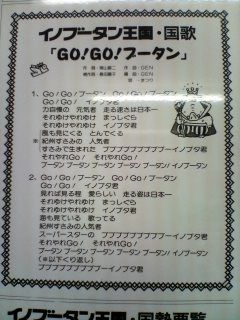 イノブータン王国・国歌
「GO!GO!ブータン」
1、Go!Go!ブータン Go!Go!ブータン
Go!Go! イノブタ君
力自慢の 元気者 走る速さは日本一
それゆけやれゆけ まっしぐら
それゆけやれゆけ イノブタ君
風も見にくる とんでくる
※ 紀州すさみの 人気者
すさみで生まれた ブブブブブブブーイノブタ君
それやれGo! それやれGo!
ブータン ブータン ブータン ブータン ブータン! イノブータン
2、Go!Go!ブータン Go!Go!ブータン
Go!Go! イノブタ君
見れば見る程 愛らしい 走る姿は日本一
それゆけやれゆけ まっしぐら
それゆけやれゆけ イノブタ君
海も見ている 歌ってる
紀州すさみの人気者
スーパースターの ブブブブブブブーイノブタ君
それやれGo! それやれGo!
ブータン ブータン ブータン ブータン ブータン! イノブータン
(※以下くり返し)
ブブブブブブブブーイノブタ君
イノブータン王国・国勢要覧